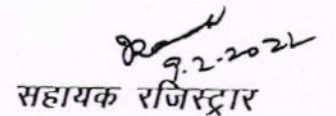 9.2.2022
सहायक रजिस्ट्रार